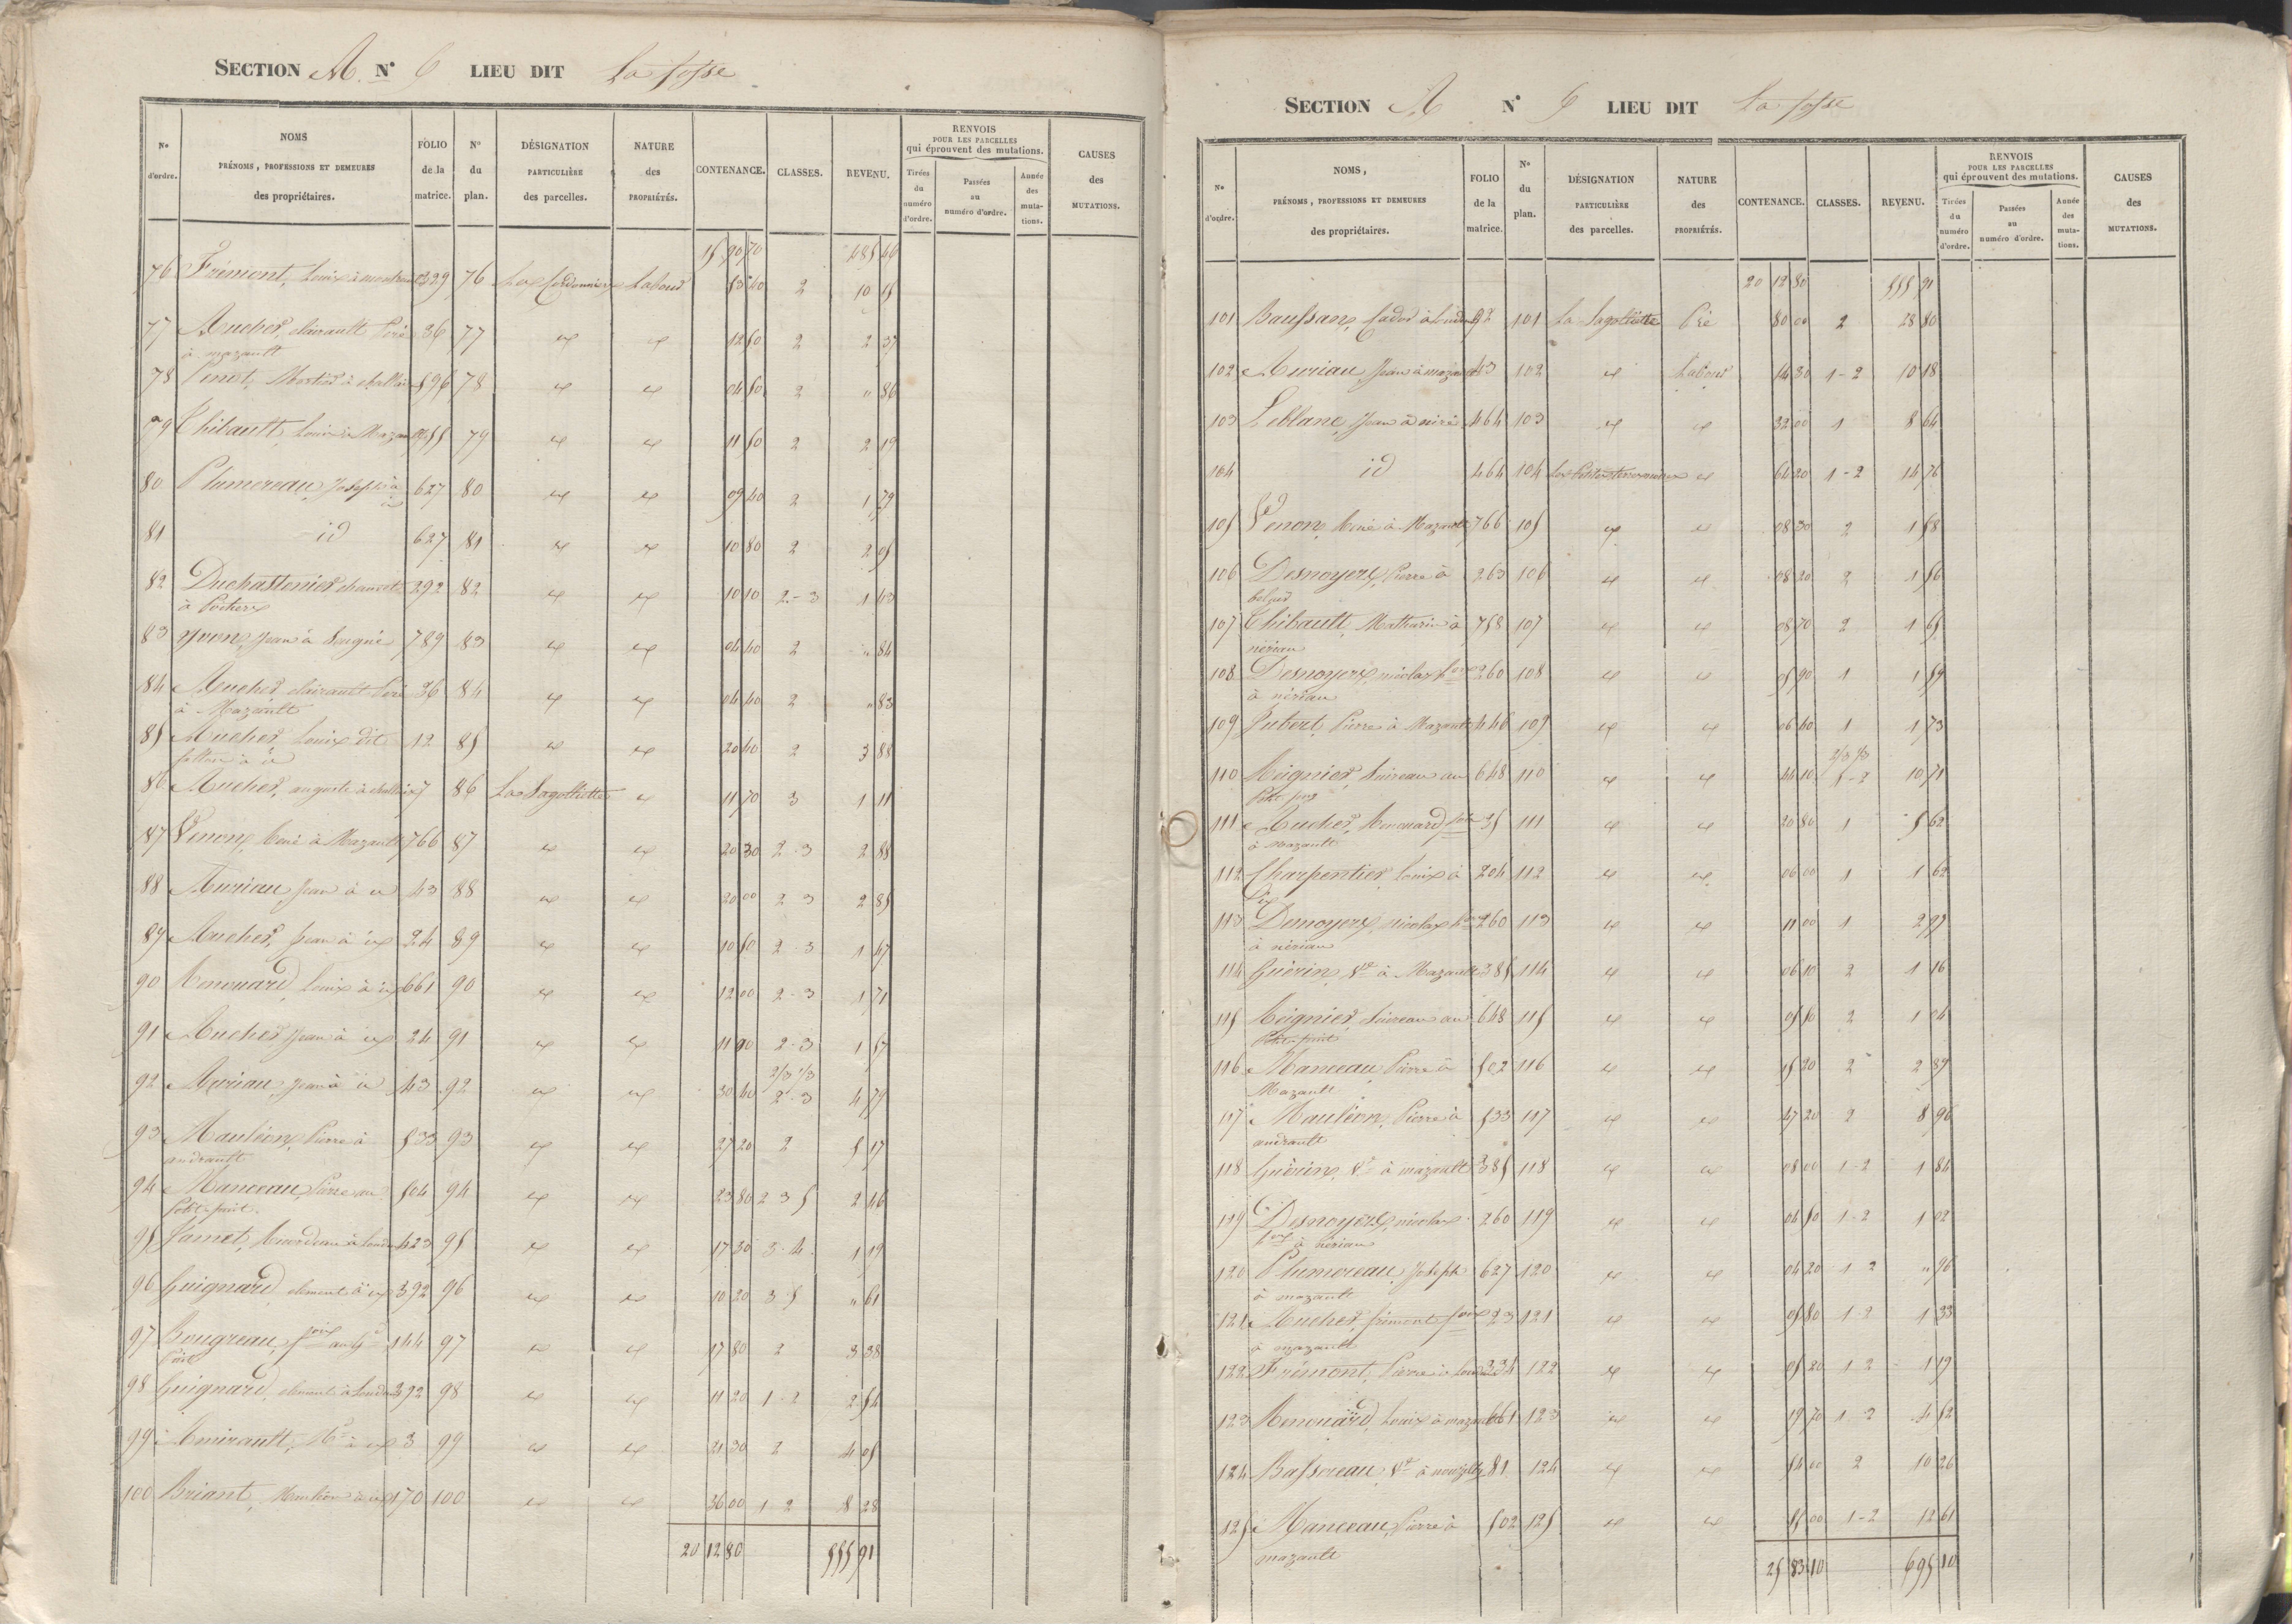 SECTION M. N° 6 LIEU DIT La fosse
N° d'ordre. NOMS PRÉNOMS, PROFESSIONS ET DEMEURES des propriétaires. FOLIO de la matrice. N° du plan. DÉSIGNATION PARTICULIÈRE des parcelles. NATURE des PROPRIÉTÉS. CONTENANCE. CLASSES. REVENU. RENVOIS POUR LES PARCELLES qui éprouvent des mutations. Tirées du numéro d'ordre. Passées au numéro d'ordre. Année des mutations. CAUSES des MUTATIONS.
15 90 70 485 46
76 Frémont, Louis 429 76 Labour 53 40 2 10 15
77 Aucher, clairault 36 77 id id 12 50 2 2 37
à mazault
78 Penot, 596 78 id id 04 50 2 " 86
79 Thibault, Louis à Mazault 755 79 id id 11 50 2 2 19
80 Plumereau, Joseph à 627 80 id id 09 40 2 1 79
id
81 id 627 81 id id 10 80 2 2 05
82 Duchastenier 292 82 id id 10 10 2-3 1 63
à Poitiers
83 Yvon, Jean à 789 83 id id 04 40 2 " 84
84 Aucher, clairault 36 84 id id 04 40 2 " 83
à Mazault
85 Aucher, Louis dit 12 85 id id 20 40 2 3 88
à id
86 Aucher, auguste à 7 86 La Sagottette id 11 70 3 1 11
87 Venon, René à Mazault 766 87 id id 20 30 2-3 2 88
88 Auriau, Jean à id 43 88 id id 20 00 2 3 2 85
89 Aucher, Jean à id 24 89 id id 10 50 2-3 1 47
90 Renouard, Louis à id 661 90 id id 12 00 2-3 1 71
91 Aucher, Jean à id 24 91 id id 11 90 2-3 1 57
92 Auriau, Jean à id 43 92 id id 30 40 2/3 1/3 2-3 4 79
93 Mauléon, Pierre à 533 93 id id 27 20 2 5 17
andrault
94 Manceau, Pierre au 504 94 id id 23 80 2 3 5 2 46
petit-puit.
95 Jamet, à Loudun 423 95 id id 17 30 3-4 1 19
96 Guignard, clement à id 392 96 id id 10 20 3 5 " 61
97 Bougreau, 144 97 id id 17 80 2 3 38
98 Guignard, clement à Loudun 392 98 id id 11 20 1-2 2 54
99 Amirault, 3 99 id id 21 30 2 4 05
100 Briant, à id 170 100 id id 36 00 1 2 8 28
20 12 80 555 91
SECTION M N° 6 LIEU DIT La fosse
N° d'ordre. NOMS, PRÉNOMS, PROFESSIONS ET DEMEURES des propriétaires. FOLIO de la matrice. N° du plan. DÉSIGNATION PARTICULIÈRE des parcelles. NATURE des PROPRIÉTÉS. CONTENANCE. CLASSES. REVENU. RENVOIS POUR LES PARCELLES qui éprouvent des mutations. Tirées du numéro d'ordre. Passées au numéro d'ordre. Année des mutations. CAUSES des MUTATIONS.
20 12 80 555 91
101 Baussan, à Loudun 92 101 La Sagottette Pré 80 00 2 28 80
102 Auriau, Jean à mazault 43 102 id Labour 14 30 1-2 10 18
103 Leblanc, Jean à 464 103 id id 32 00 1 8 64
104 id 464 104 id 64 20 1-2 14 76
105 Venon, René à Mazault 766 105 id id 08 30 2 1 58
106 Desnoyers, Pierre à 263 106 id id 08 20 2 1 56
107 Thibault, Mathurin à 758 107 id id 08 70 2 1 65
nériau
108 Desnoyers, nicolas 260 108 id id 05 90 1 1 59
à nériau
109 Jubert, Pierre à Mazault 446 109 id id 06 40 1 1 73
110 Reignier, au 648 110 id id 44 10 2/3 1/3 1-2 10 71
111 Aucher, Renouard 35 111 id id 20 80 1 5 62
à Mazault
112 Charpentier, Louis à 204 112 id id 06 00 1 1 62
113 Desnoyers, nicolas 260 113 id id 11 00 1 2 97
à nériau
114 Guérin, Ve à Mazault 385 114 id id 06 10 2 1 16
115 Reignier, au 648 115 id id 05 50 2 1 04
Petit-puit
116 Manceau, Pierre à 502 116 id id 15 20 2 2 89
Mazault
117 Mauléon, Pierre à 533 117 id id 47 20 2 8 96
andrault
118 Guérin, Ve à mazault 385 118 id id 08 00 1-2 1 84
119 Desnoyers, nicolas 260 119 id id 04 50 1-2 1 02
à nériau
120 Plumereau, Joseph 627 120 id id 04 20 1 2 " 96
à mazault
121 Aucher, frémont 23 121 id id 05 80 1-2 1 33
à mazault
122 Frémont, Pierre à 334 122 id id 05 20 1-2 1 19
123 Renouard, Louis à mazault 661 123 id id 19 70 1-2 4 52
124 Bassereau, Ve à 81 124 id id 54 00 2 10 26
125 Manceau, Pierre à 502 125 id id 55 00 1-2 12 61
mazault
25 83 10 695 10